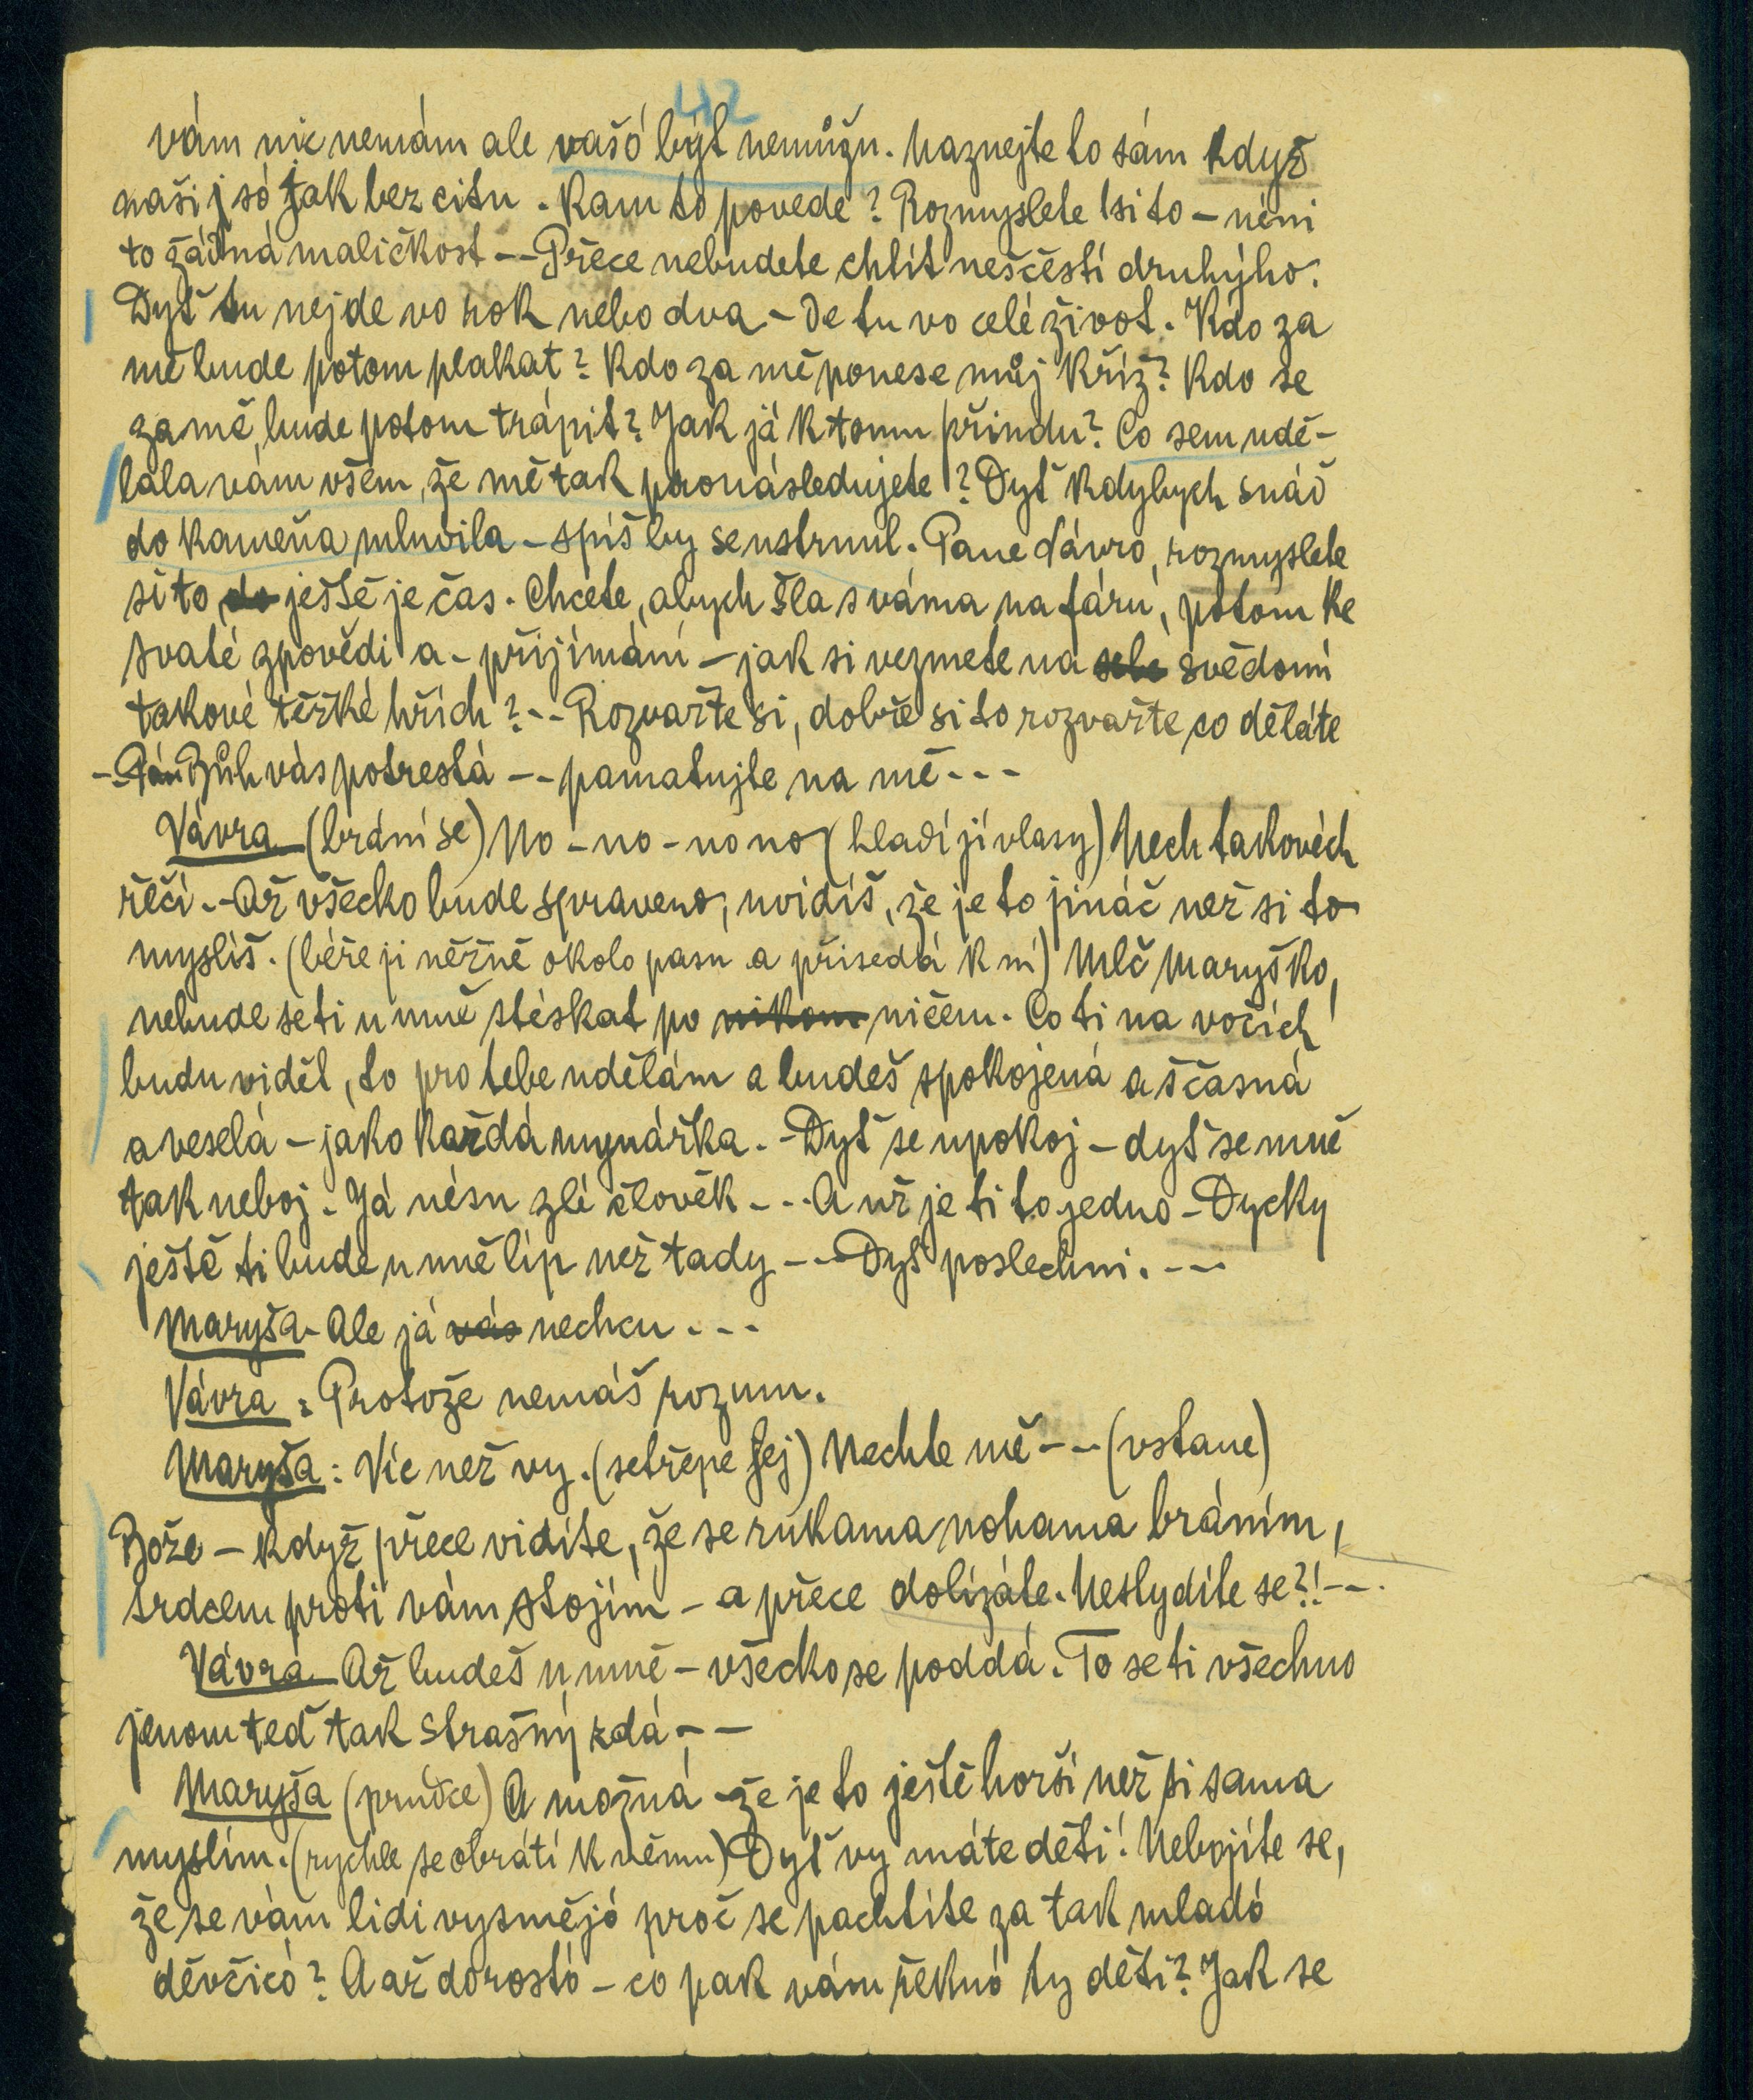 42
vám nic nemám ale vašó být nemůžu. Uaznejte to sám když
naši jsó tak bez citu. Kam to povede? Rozmyslete si to – néni
to žádná maličkost -- Přece nebudete chtít neščěstí druhýho.
Dyť tu nejde vo rok nebo dva – de tu vo celé život. Kdo za
mě bude potom plakat? Kdo za mě ponese můj kříž? Kdo se
za mě bude potom trápit? Jak já k tomu přindu? Co sem udě-
lala vám všem, že mě tak pronásledujete? Dyť kdybych snáď
do kameňa mluvila – spíš by se ustrnul. Pane Vávro, rozmyslete
si to, ještě je čas. Chcete, abych šla s váma na faru, potom ke
svaté zpovědi a – přijímání – jak si vezmete na sebe svědomí
takové těžké hřích? -- Rozvažte si, dobře si to rozvažte, co děláte
– Pán Bůh vás potrestá -- pamatujte na mě - - -
Vávra (brání se) No – no – no no (hladí jí vlasy) Nech takovéch
řečí. – Až všecko bude spraveno, uvidíš, že je to jináč než si to
myslíš. (béře ji něžně okolo pasu a přisedá k ní) Mlč Maryško,
nebude se ti u mně stéskat po nikom ničem. Co ti na vočích
budu viděl, to pro tebe udělám a budeš spokojená a ščasná
a veselá – jako každá mynářka. – Dyť se upokoj – dyť se mně
tak neboj. Já nésu zlé člověk - - - A už je ti to jedno – Dycky
ještě ti bude u mně líp než tady -- Dyť poslechni. - - -
Maryša – Ale já vás nechcu - - -
Vávra: Protože nemáš rozum.
Maryša: Víc než vy. (setřepe jej) Nechte mě - - (vstane)
Bože – když přece vidíte, že se rukama nohama bráním,
srdcem proti vám stojím – a přece dolízáte. Nestydíte se?! - - .
Vávra – Až budeš u mně – všecko se poddá. To se ti všechno
jenom teď tak strašný zdá - –
Maryša (prudce) A možná – že je to ještě horší než si sama
myslím. (rychle se obrátí k němu) Dyť vy máte děti! Nebojíte se,
že se vám lidi vysmějó proč se pachtíte za tak mladó
děvčicó? A až dorostó – co pak vám řeknó ty děti? Jak se